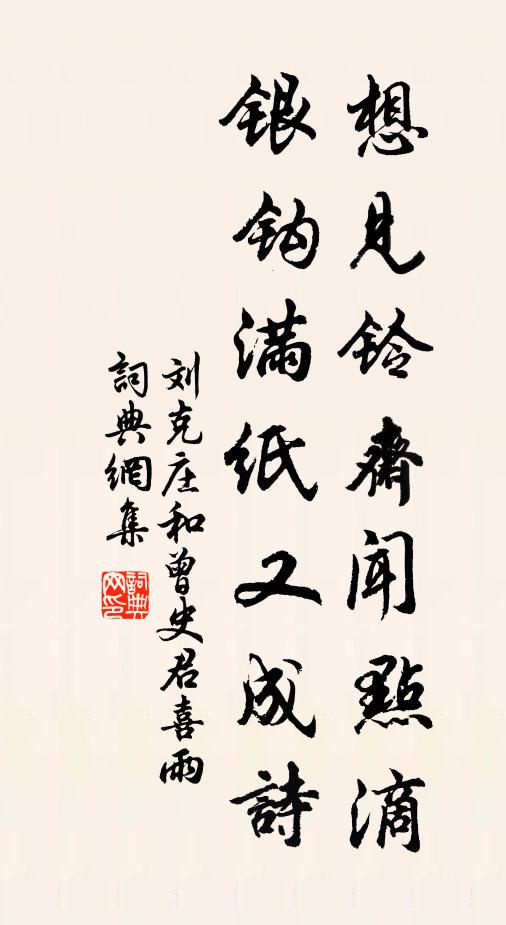 想見鈴齋聞點滴
銀鈎滿紙又成詩
刘克庄和曾史君喜雨
詞典網集
詞典网印